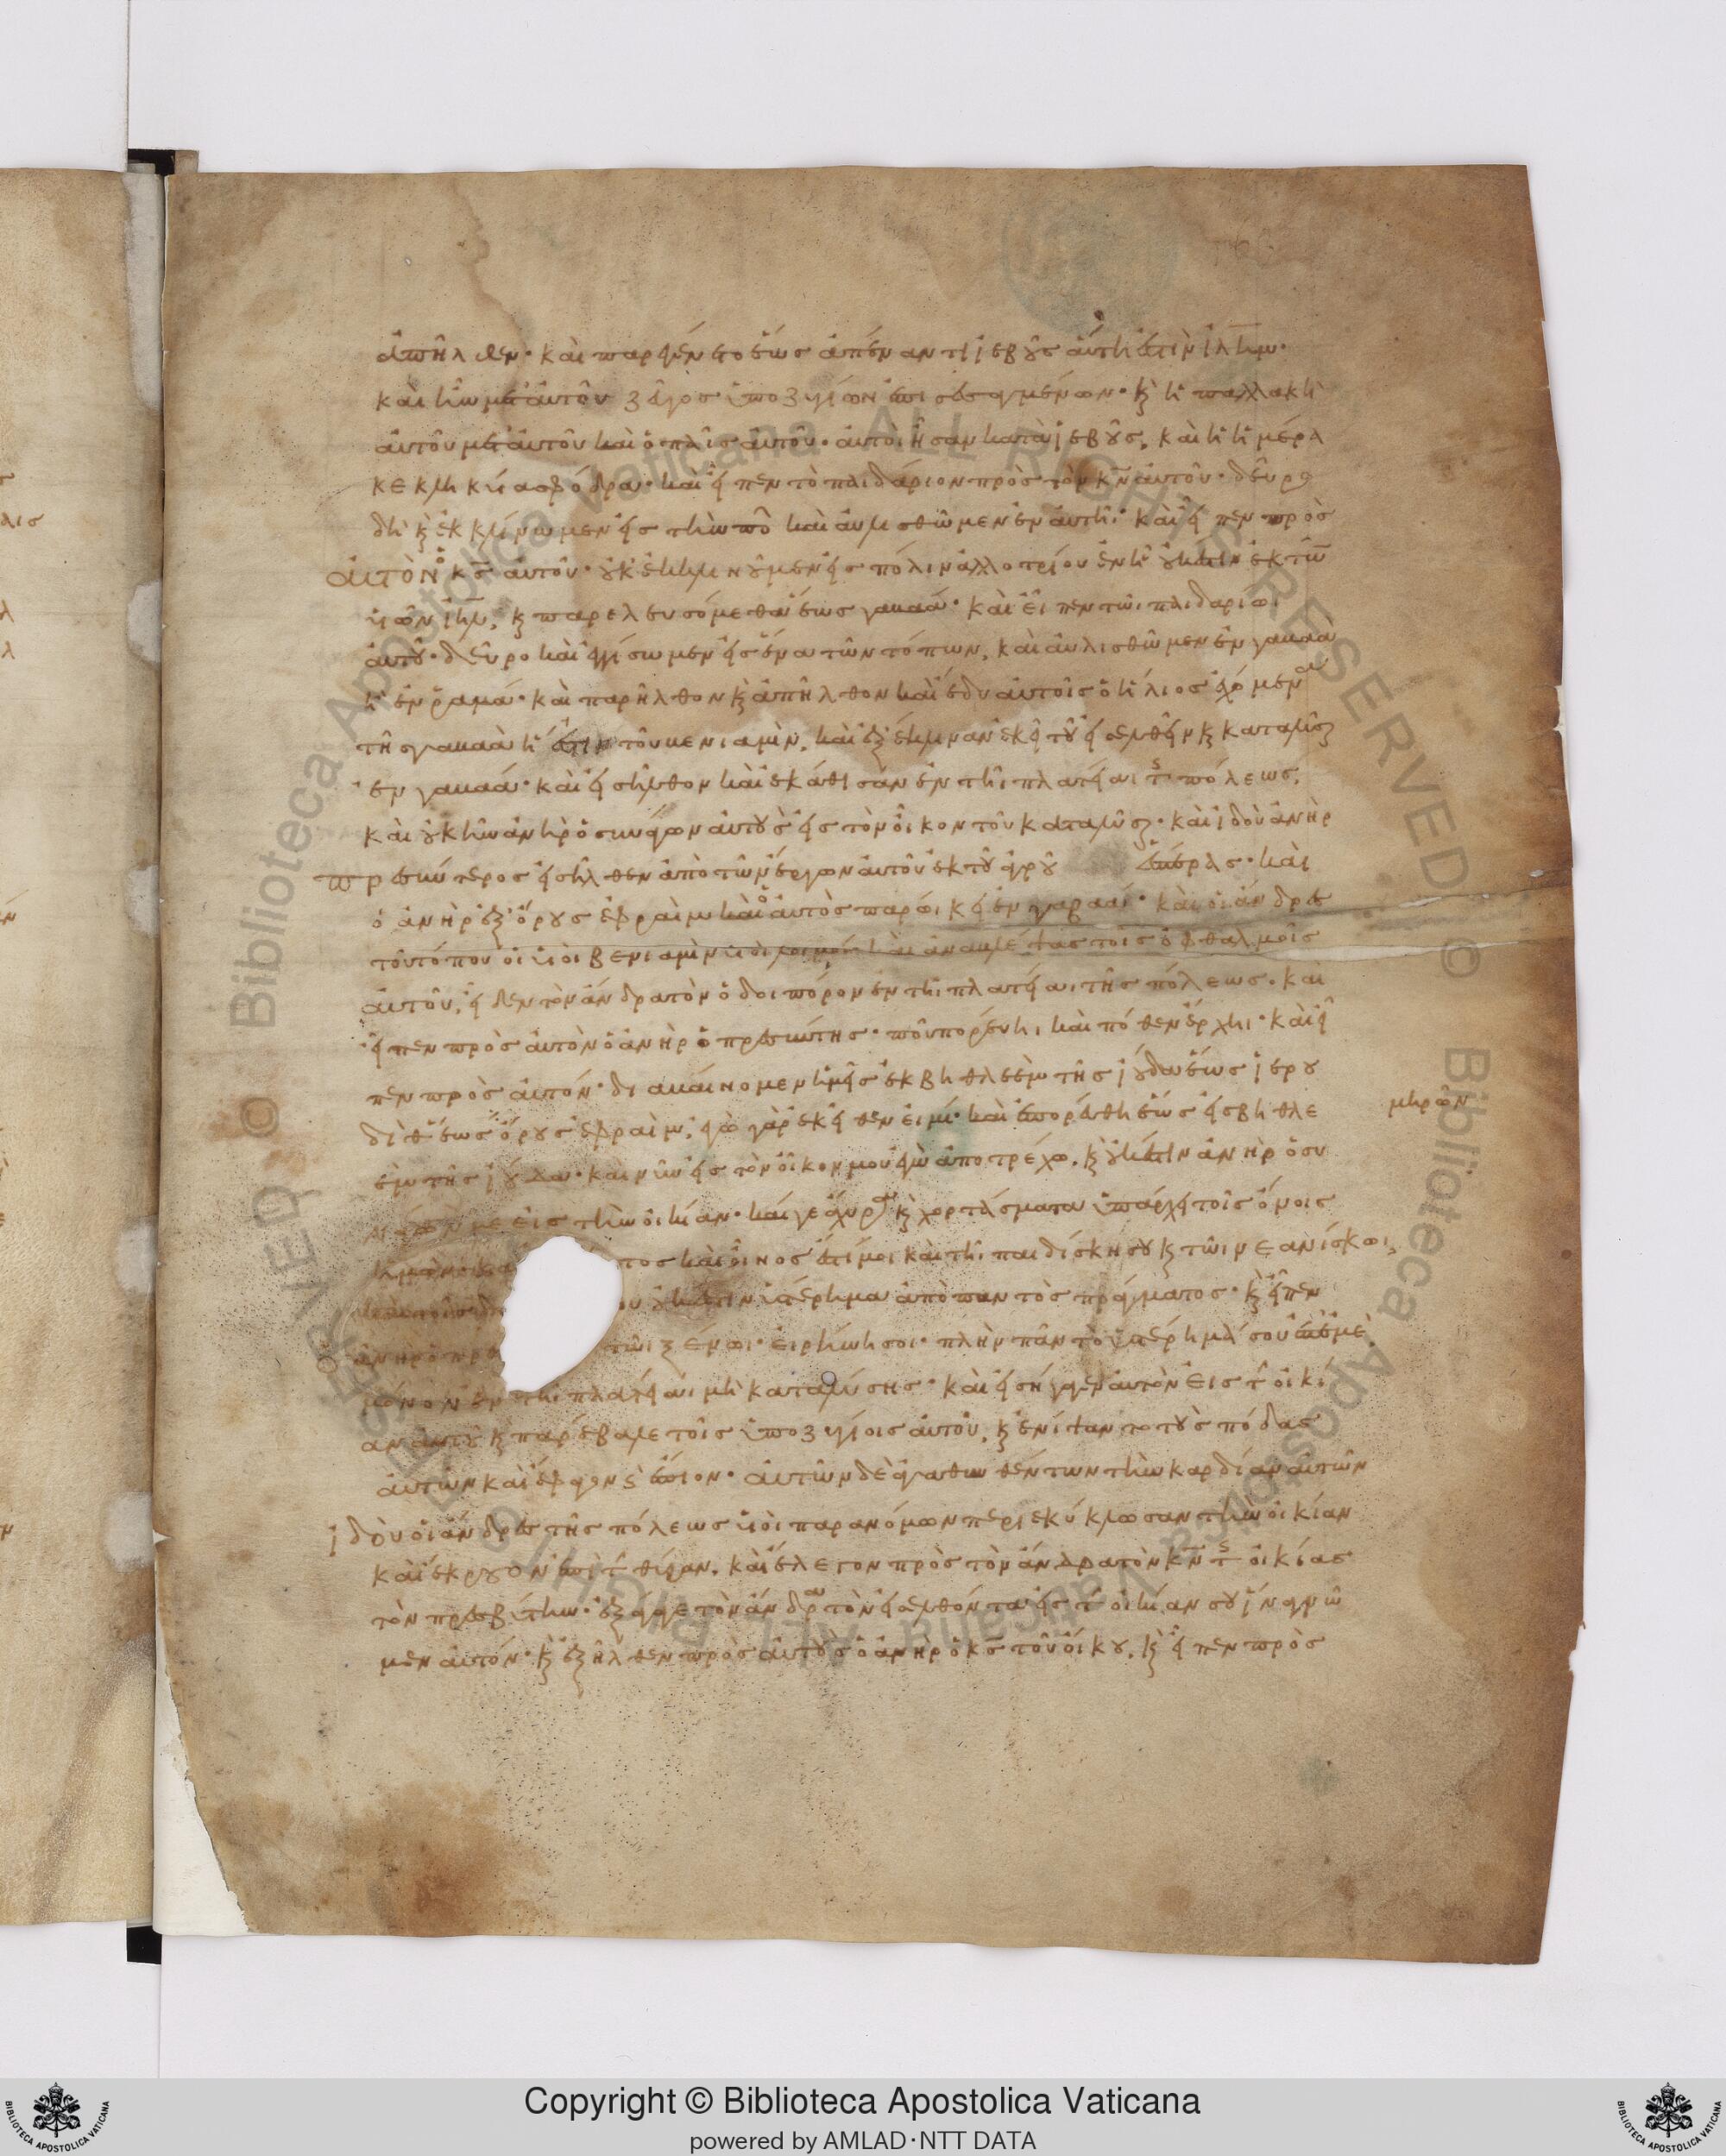 ἀπῆλθεν· καὶ παρεγένετο ἕως ἀπέναντι ἰεβοῦς αὕτη ἐστὶν ἰλημ·
καὶ ἦν μετ' αὐτοῦ ζεῦγος ὑποζυγίων ἐπισεσαγμένων· κ ἡ παλλακὴ
αὐτοῦ μετ' αὐτοῦ καὶ ὁ παῖς αὐτοῦ· αὐτοὶ ἦσαν κατὰ ἰεβοῦς, καὶ ἡ ἡμέρα
κεκληκυῖα σφόδρα· καὶ εἶπεν τὸ παιδάριον πρὸς τὸν κν αὐτοῦ· δεῦρο
δὴ κ ἐκκλίνωμεν εἰς τὴν πο καὶ αὐλισθῶμεν ἐν αὐτῆι· καὶ εἶπεν πρὸς
αὐτὸν ὁ κς αὐτοῦ· οὐκ ἐκκλινοῦμεν εἰς πόλιν ἀλλοτρίου ἐν ἧ οὐκ ἔστιν ἐκ τῶν
υἱῶν ιηλ, κ παρελευσόμεθα ἕως γαβαά· καὶ εἶπεν τῶι παιδαρίωι
αὐτοῦ· δεῦρο καὶ ἐγγίσωμεν εἰς ἕνα τῶν τόπων, καὶ αὐλισθῶμεν ἐν γαβαὰ
ἢ ἐν ῥαμά· καὶ παρῆλθον κ ἀπῆλθον καὶ ἔδυ αὐτοῖς ὁ ἥλιος ἐχόμενα
τῆς γαβαὰ ἥ ἐστιν τοῦ βενιαμὶν, καὶ ἐξέκλιναν ἐκεῖ τοῦ εἰσελθεῖν κ καταλῦσαι
ἐν γαβαά· καὶ εἰσῆλθον καὶ ἐκάθισαν ἐν τῆι πλατείαι τς πόλεως,
καὶ οὐκ ἦν ἀνὴρ ὁ συνάγων αὐτοὺς εἰς τὸν οἶκον τοῦ καταλῦσαι· καὶ ἰδοὺ ἀνὴρ
πρεσβύτερος εἰσῆλθεν ἀπὸ τῶν ἔργων αὐτοῦ ἐκ τοῦ ἀγροῦ ἑσπέρας· καὶ
ὁ ἀνὴρ ἐξ ὄρους ἐφραὶμ καὶ αὐτὸς παρώικει ἐν γαβαά· καὶ οἱ ἄνδρες
τοῦ τόπου οἱ υἱοὶ βενιαμὶν καὶ ἀναβλέψας τοῖς ὀφθαλμοῖς
αὐτοῦ, εἶδεν τὸν ἄνδρα τὸν ὁδοιπόρον ἐν τῆι πλατείαι τῆς πόλεως· καὶ
εἶπεν πρὸς αὐτὸν ὁ ἀνὴρ ὁ πρεσβύτης· ποῦ πορεύηι, καὶ πόθεν ἔρχηι· καὶ εἶ
πεν πρὸς αὐτόν· διαβαίνομεν ἡμεῖς ἐκ βηθλεὲμ τῆς ἰούδα ἕως ἱερου
μηρῶν
δὶ θ ἕως ὄρους ἐφραὶμ, ἐγὼ γὰρ ἐκεῖθεν εἰμί· καὶ ἐπορεύθην ἕως εἰς βηθλε
ὲμ τῆς ἰούδα· καὶ νῦν εἰς τὸν οἶκον μου ἐγὼ ἀποτρέχω, κ οὐκ ἔστιν ἀνὴρ ὁ συ
νάγων με εἰς τὴν οἰκίαν· καί γε ἄχυρα κ χορτάσματα ὑπάρχει τοῖς ὄνοις
ἡμῶν τος καὶ οἶνος ἐστί μοι καὶ τῆι παιδίσκη σου κ τῶι νεανίσκωι,
οὐκ ἔστιν ὑστέρημα ἀπὸ παντὸς πράγματος· κ εἶπεν
τῶι ξένωι· εἰρήνη σοι· πλὴν πᾶν τὸ ὑστέρημά σου ἐπ' ἐμὲ,
μόνον ἐν τῆι πλατείαι μὴ καταλύσηις· καὶ εἰσήγαγεν αὐτὸν εἰς τ οἰκί
αν αὐτοῦ κ παρέβαλε τοῖς ὑποζυγίοις αὐτοῦ, κ ἐνίψαντο τοὺς πόδας
αὐτῶν καὶ ἔφαγον κ ἔπιον· αὐτῶν δὲ ἀγαθυνθέντων τὴν καρδίαν αὐτῶν
ἰδοὺ οἱ ἄνδρες τῆς πόλεως υἱοὶ παρανόμων περιεκύκλωσαν τὴν οἰκίαν
καὶ ἔκρουον ἐπὶ τ θύραν, καὶ ἔλεγον πρὸς τὸν ἄνδρα τὸν κν τς οἰκίας
τὸν πρεσβύτην· ἐξάγαγε τὸν ἄνδρα τὸν εἰσελθόντα εἰς τ οἰκίαν σου ἵνα γνῶ
μεν αὐτόν· κ ἐξῆλθεν πρὸς αὐτοὺς ὁ ἀνὴρ ὁ κς τοῦ οἴκου, κ εἶπεν πρὸς
Copyright © Biblioteca Apostolica Vaticana
powered by AMLAD·NTT DATA